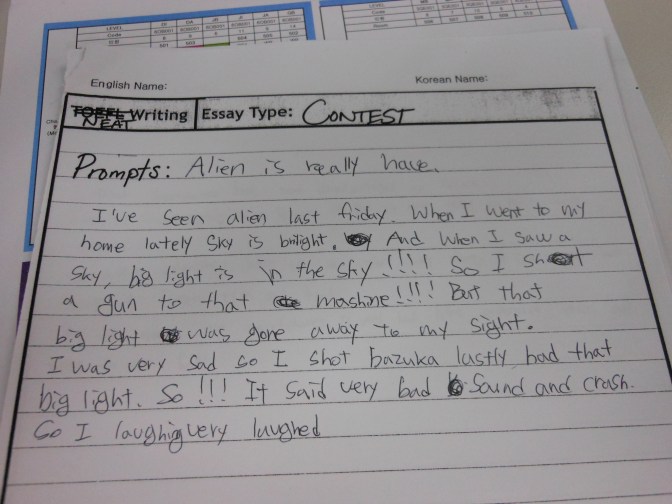 English Name:
Korean Name:
TOEFL Writing
NEAT
Essay Type: CONTEST
Prompts: Alien is really have.
I've seen alien last friday. When I went to my
home lately sky is bright. And when I saw a
sky, big light is in the sky !!!! So I short
a gun to that mashine!!!! But that
big light was gone away to my sight.
I was very sad so I shot bazuka lastly bad that
big light. So !!! It said very bad sound and crash.
So I laughing very laughed